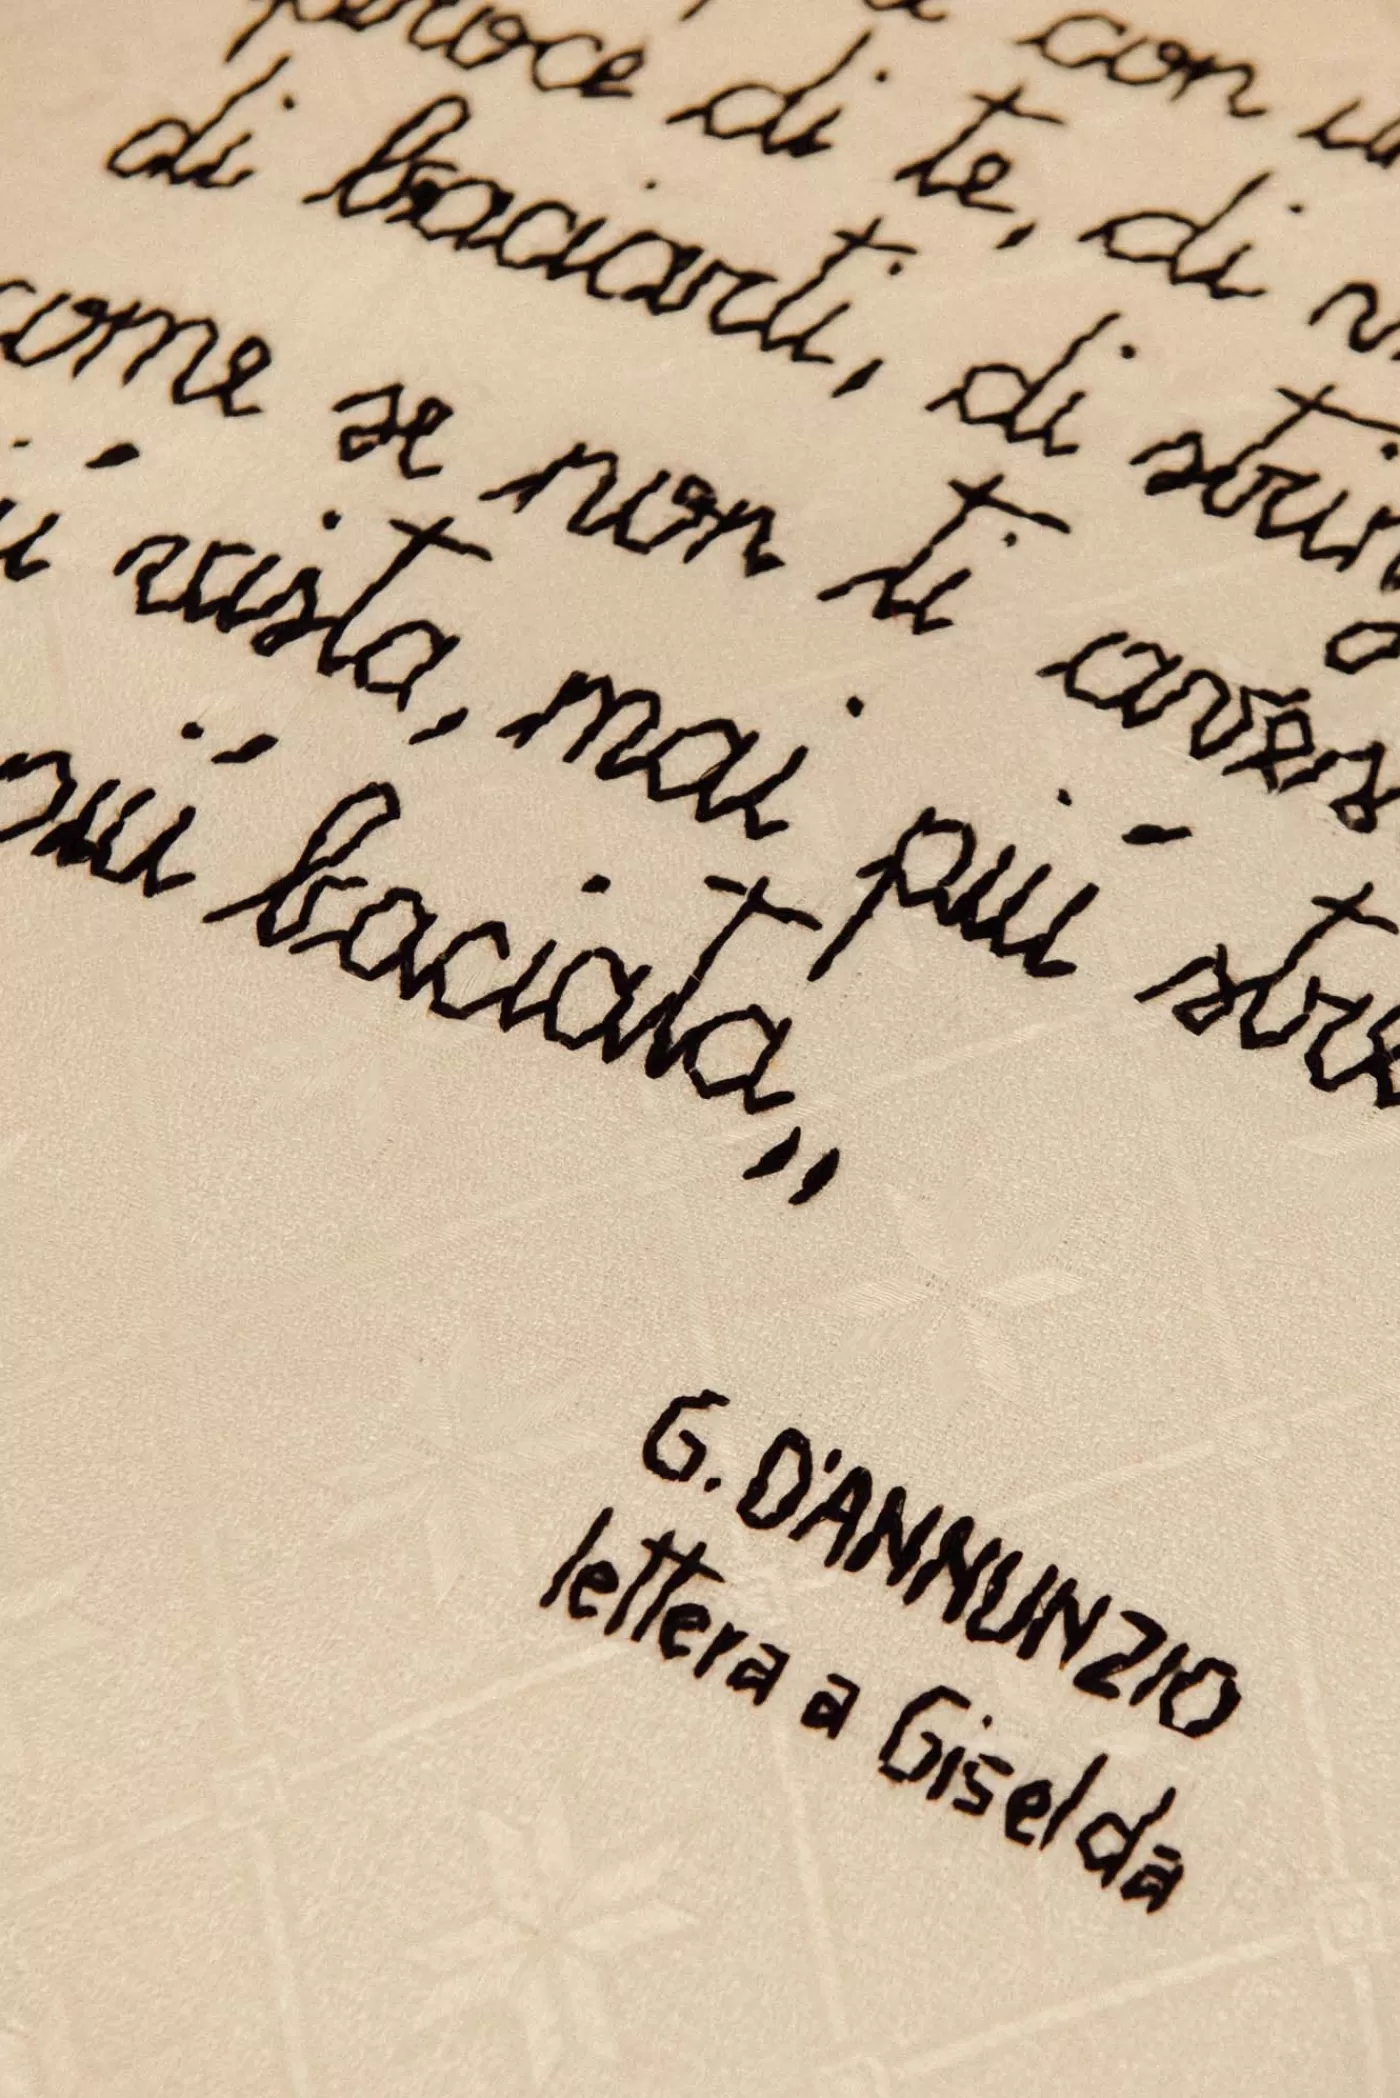 con
feroce di te, di
di baciarti, di strin
come se non ti aves
vista, mai più stre
più baciata,,
G. D'ANNUNZIO
lettera a Giselda